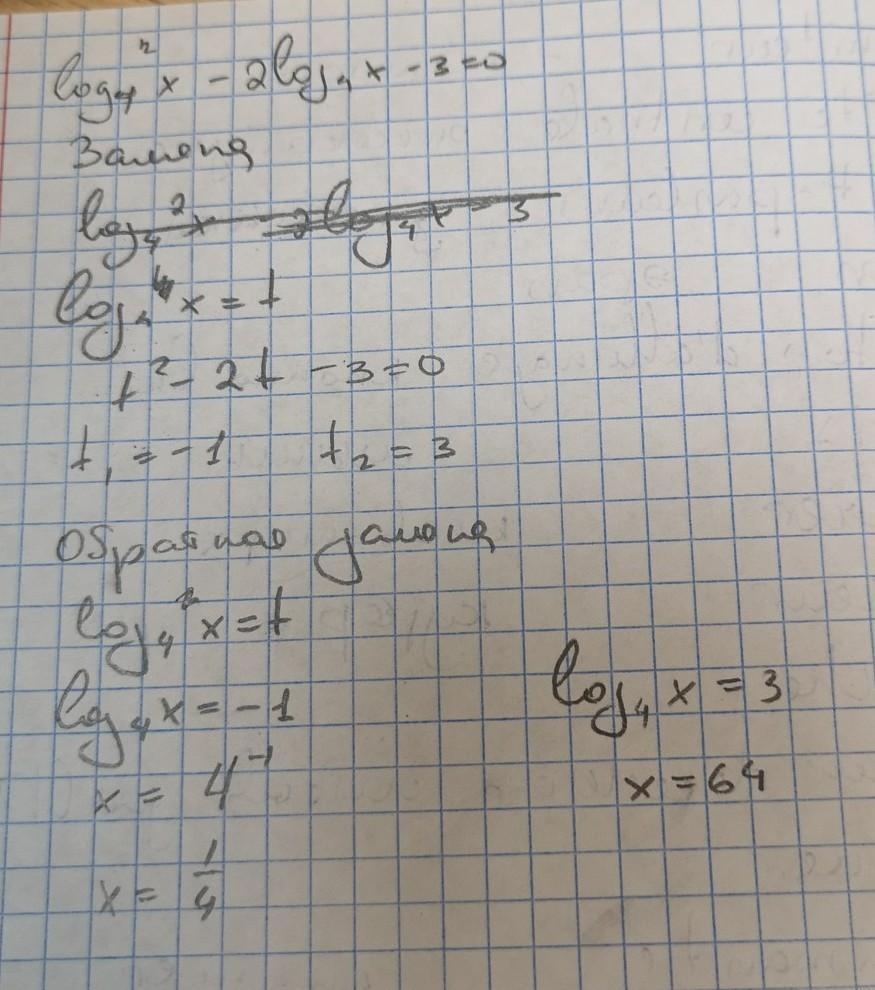 log₄² x - 2log₄ x - 3 = 0
Замена
log₄² x - 2log₄ x - 3
log₄ x = t
t² - 2t - 3 = 0
t₁ = -1 t₂ = 3
Обратная замена
log₄² x = t
log₄ x = -1 log₄ x = 3
x = 4⁻¹ x = 64
x = 1/4